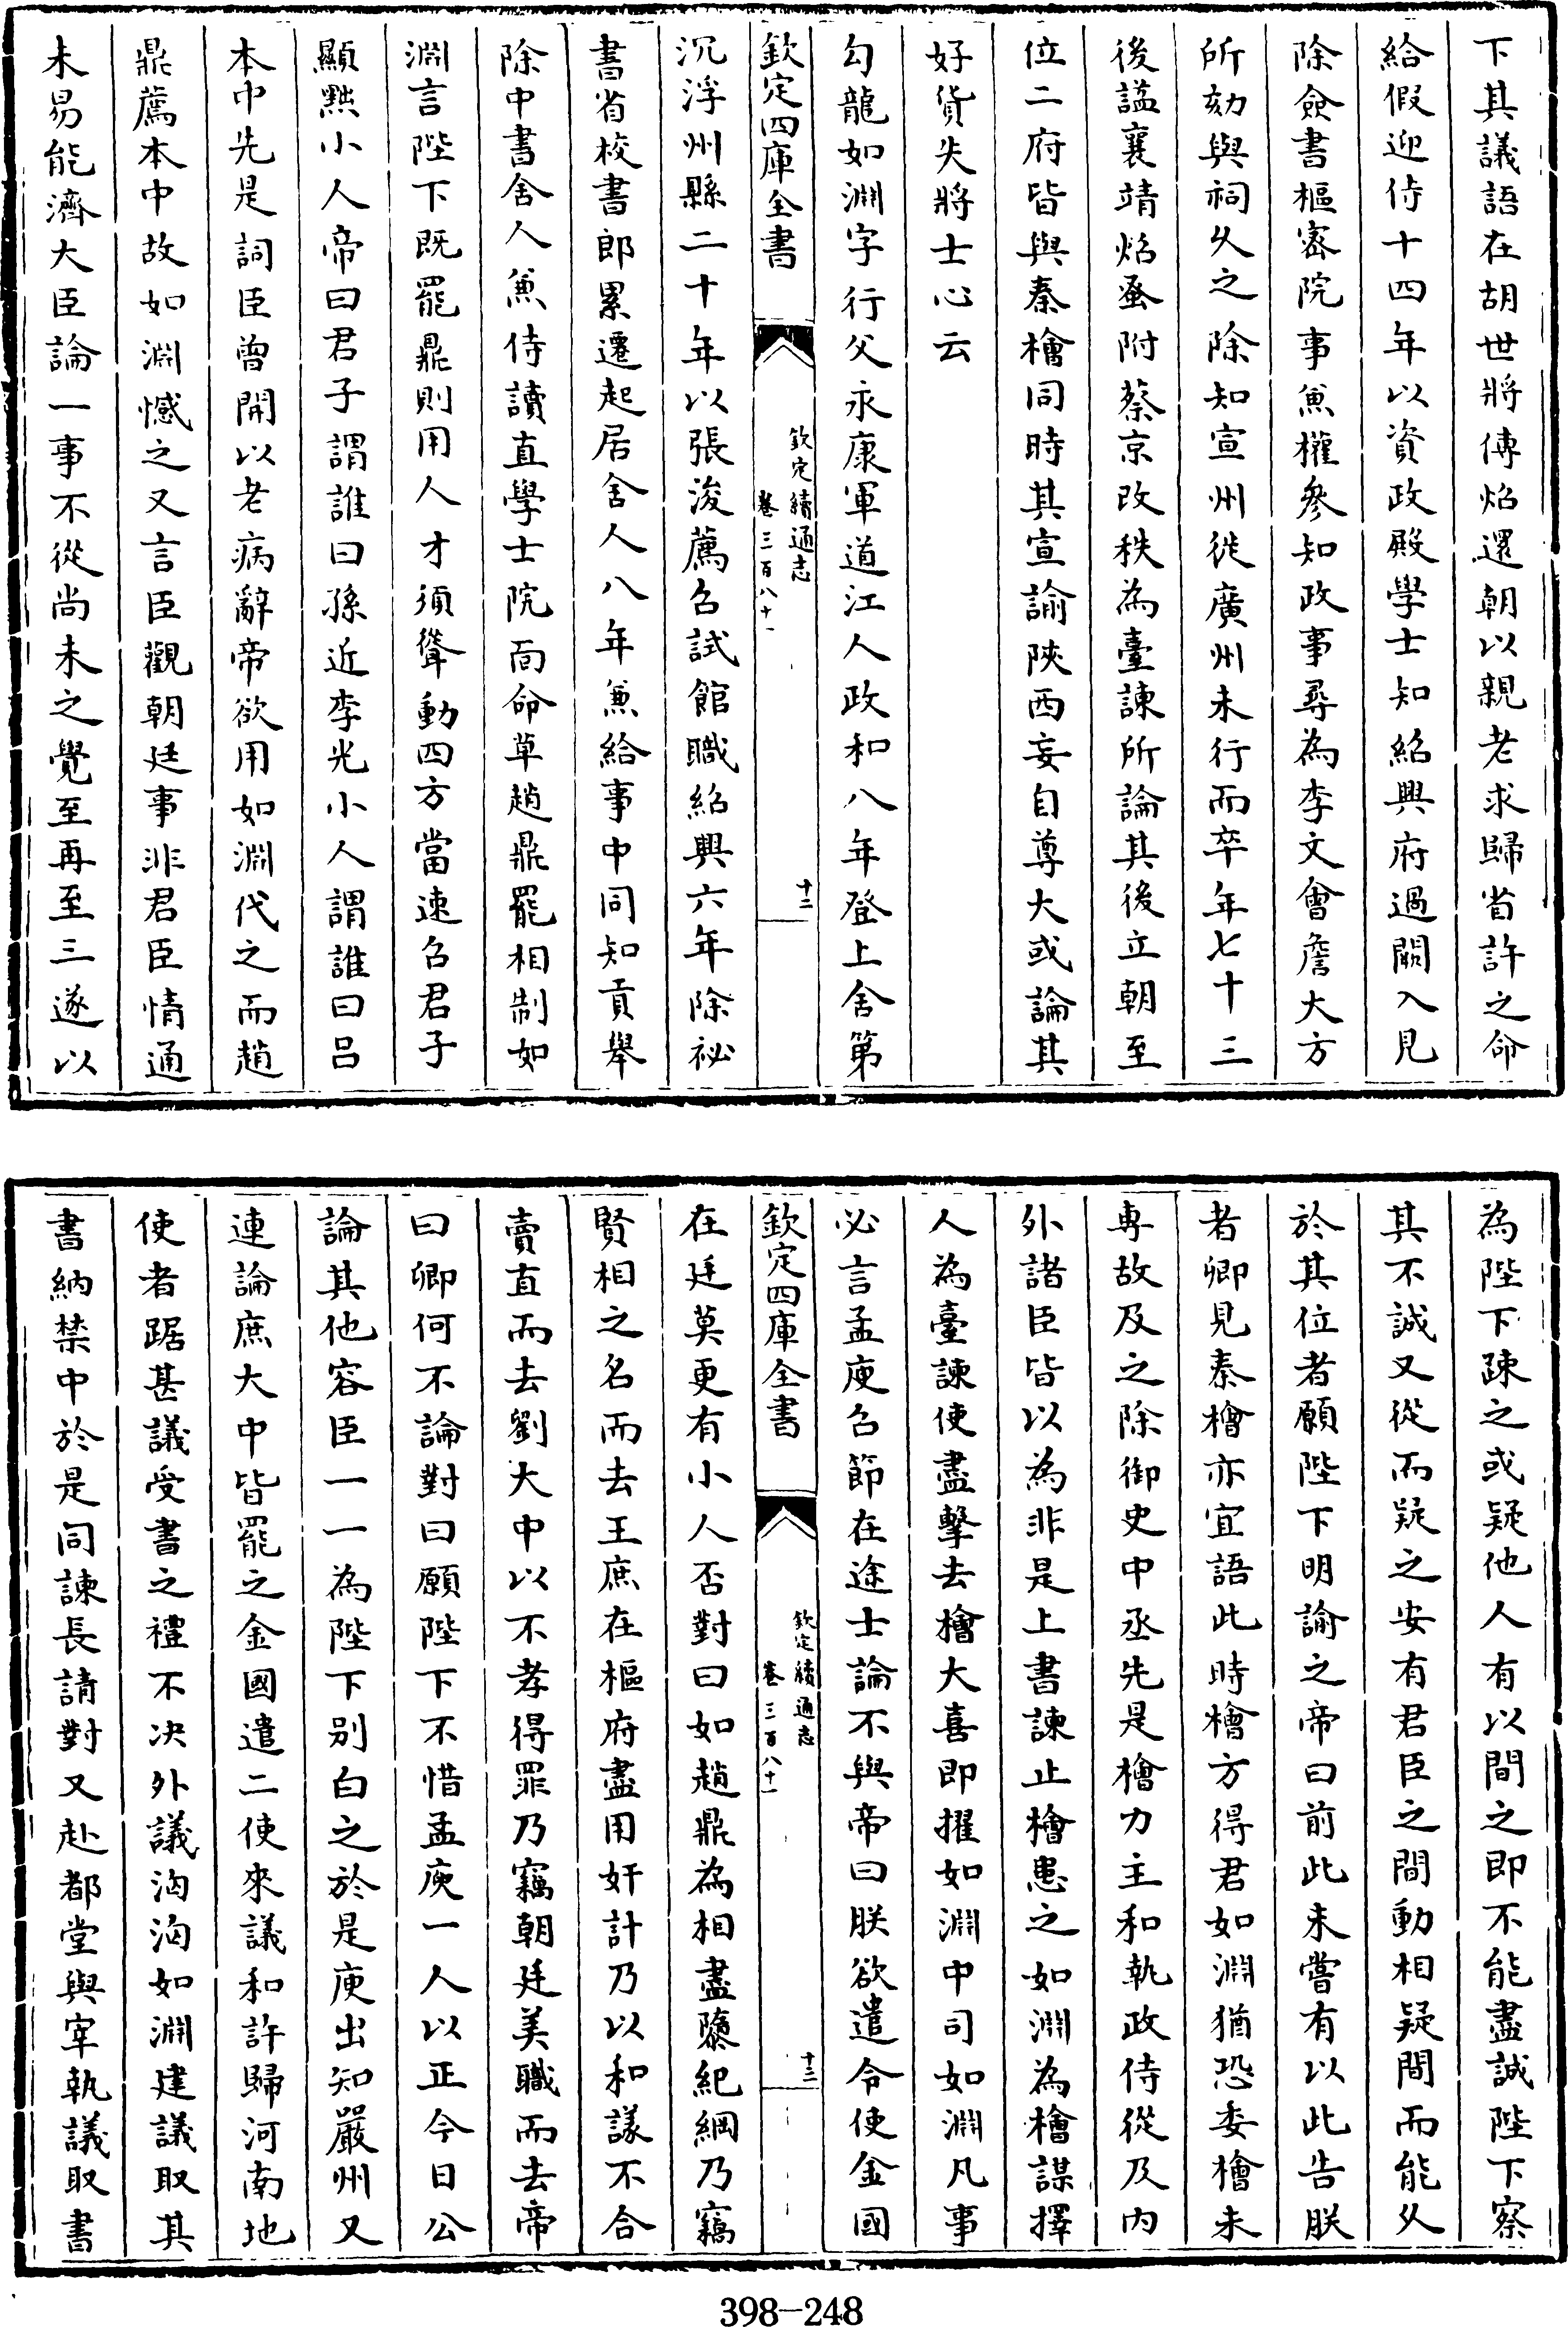 下其議語在胡世將傳炤還朝以親老求歸省許之命
給假迎侍十四年以資政殿學士知紹興府過闕入見
除僉書樞密院事兼權參知政事尋為李文會詹大方
所劾與祠久之除知宣州徙廣州未行而卒年七十三
後諡襄靖炤蚤附蔡京改秩為臺諫所論其後立朝至
位二府皆與秦檜同時其宣諭陜西妄自尊大或論其
好貨失將士心云
勾龍如淵字行父永康軍道江人政和八年登上舍第
欽定四庫全書
欽定續通志
卷三百八十一
十二
沉浮州縣二十年以張浚薦召試館職紹興六年除祕
書省校書郎累遷起居舍人八年兼給事中同知貢舉
除中書舍人兼侍讀直學士院面命草趙鼎罷相制如
淵言陛下既罷鼎則用人才須聳動四方當速召君子
顯黜小人帝曰君子謂誰曰孫近李光小人謂誰曰呂
本中先是詞臣曾開以老病辭帝欲用如淵代之而趙
鼎薦本中故如淵憾之又言臣觀朝廷事非君臣情通
未易能濟大臣論一事不從尚未之覺至再至三遂以
為陛下疎之或疑他人有以間之即不能盡誠陛下察
其不誠又從而疑之安有君臣之間動相疑間而能久
於其位者願陛下明諭之帝曰前此未嘗有以此告朕
者卿見秦檜亦宜語此時檜方得君如淵猶恐委檜未
專故及之除御史中丞先是檜力主和執政侍從及內
外諸臣皆以為非是上書諫止檜患之如淵為檜謀擇
人為臺諫使盡擊去檜大喜即擢如淵中司如淵凡事
必言孟庾召節在途士論不與帝曰朕欲遣令使金國
欽定四庫全書
欽定續通志
卷三百八十一
十三
在廷莫更有小人否對曰如趙鼎為相盡隳紀綱乃竊
賢相之名而去王庶在樞府盡用奸計乃以和議不合
賣直而去劉大中以不孝得罪乃竊朝廷美職而去帝
曰卿何不論對曰願陛下不惜孟庾一人以正今日公
論其他容臣一一為陛下別白之於是庾出知嚴州又
連論庶大中皆罷之金國遣二使來議和許歸河南地
使者踞甚議受書之禮不決外議洶洶如淵建議取其
書納禁中於是同諫長請對又赴都堂與宰執議取書
398-248